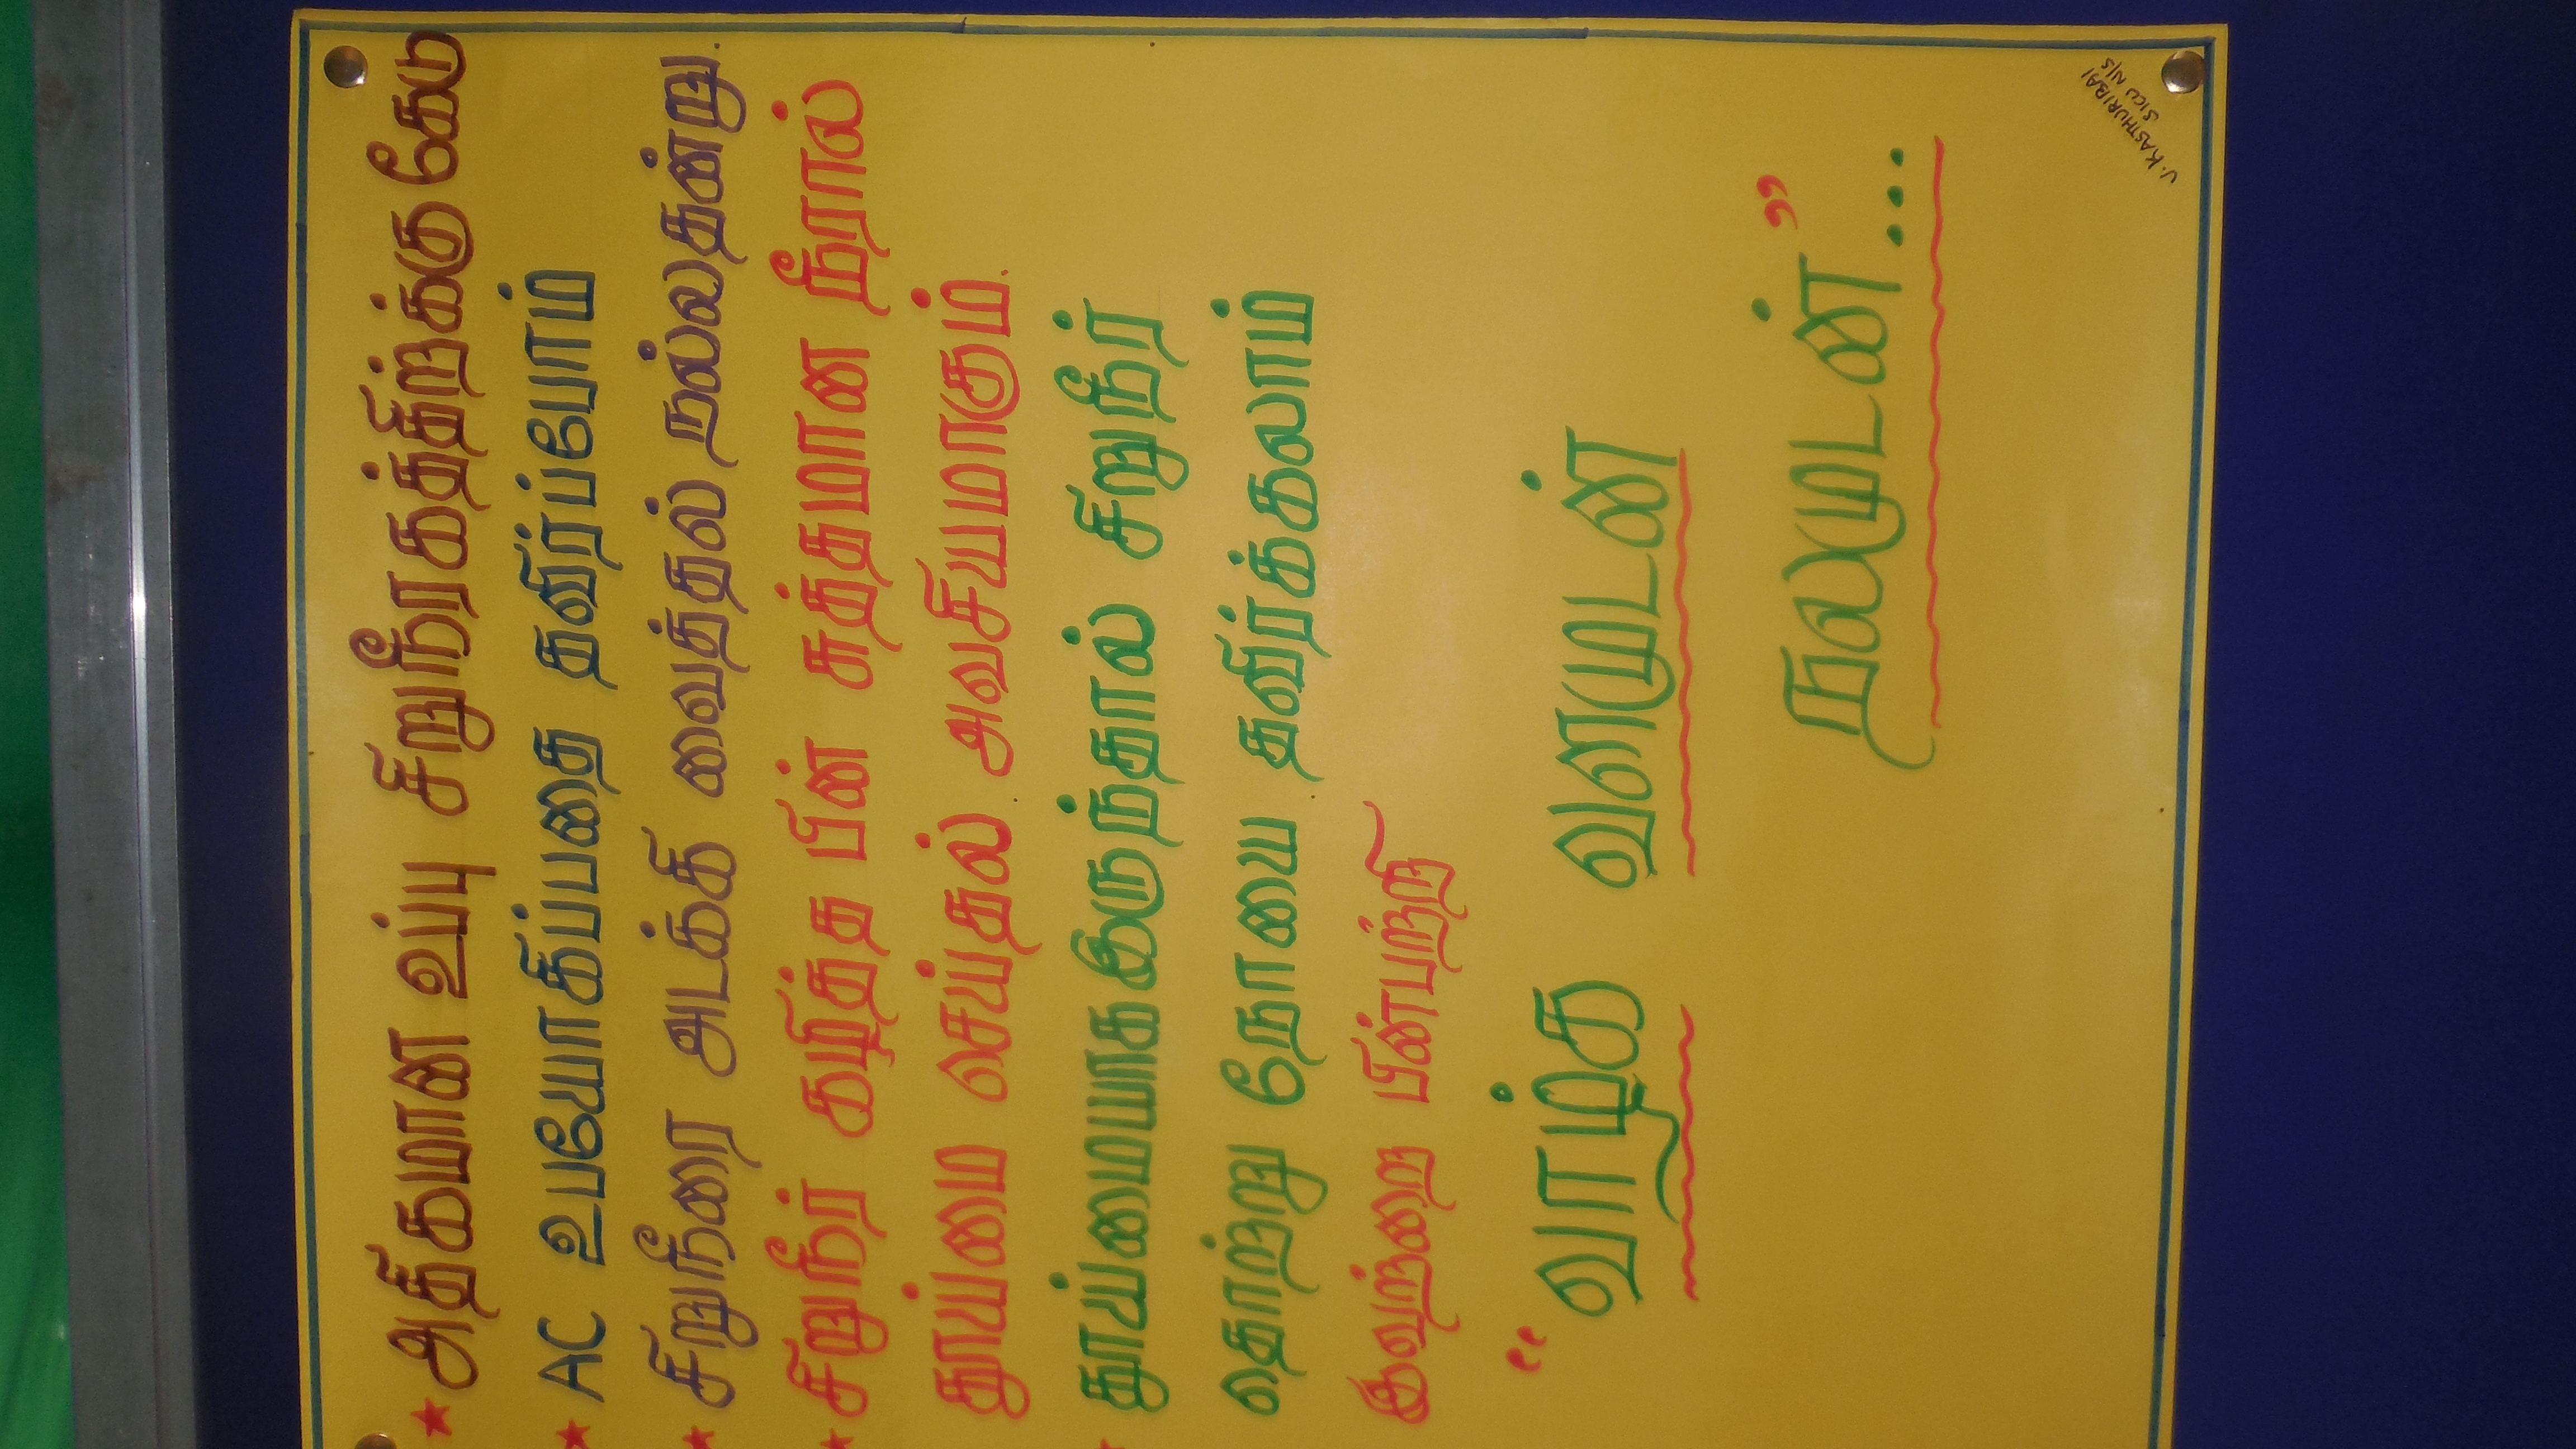 ★ அதிகமான உப்பு சிறுநீரகத்திற்க்கு கேடு
★ AC உபயோகிப்பதை தவிர்ப்போம்
★ சிறுநீரை அடக்கி வைத்தல் நல்லதன்று.
★ சிறுநீர் கழித்த பின் சுத்தமான நீரால்
தூய்மை செய்தல் அவசியமாகும்.
தூய்மையாகஇருந்தால் சிறுநீர்
தொற்று நோயை தவிர்க்கலாம்
இவற்றை பின்பற்றி
“ வாழ்க வளமுடன்
நலமுடன்” ...
J. KASTHURIBAI
SICU N/S